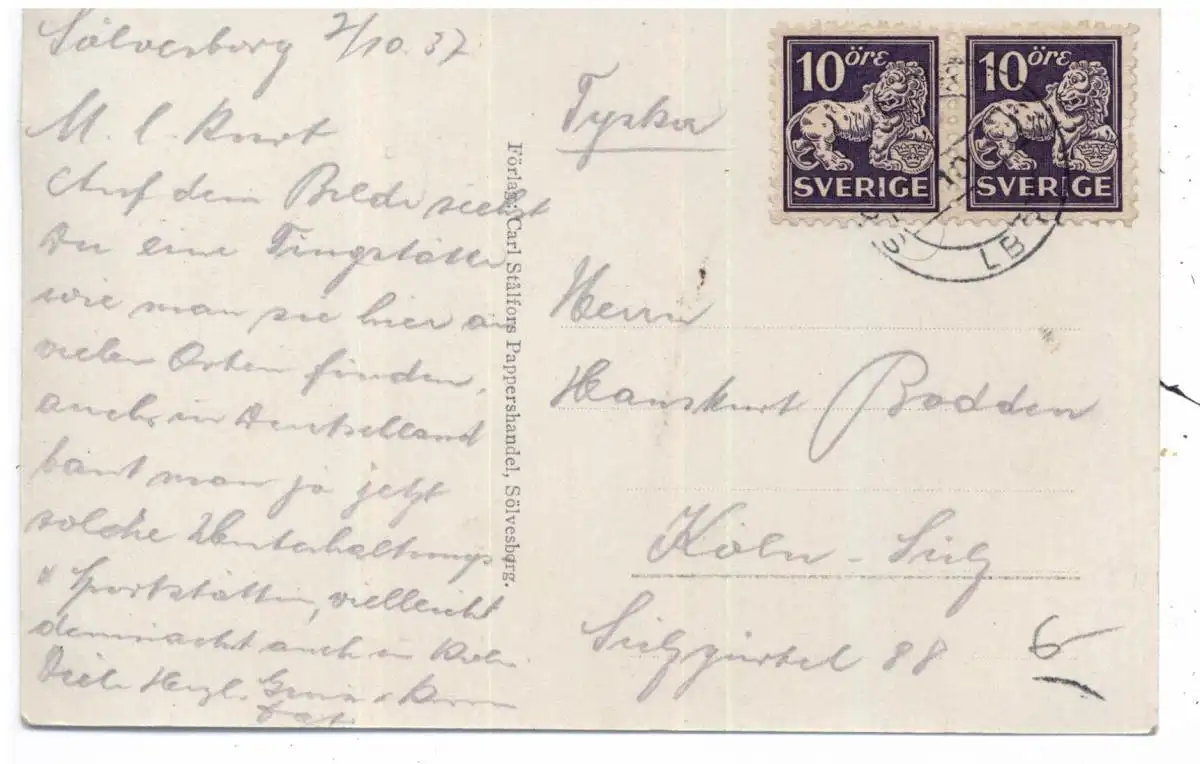 Sölvesborg 2/10.37
M. l. Kurt
Auf dem Bilde siehst
Du eine Tingstätte
wie man sie hier an
vielen Orten finden,
auch in Deutschland
baut man ja jetzt
solche Unterhaltungs
u Sportstätten, vielleicht
demnächst auch in Köln
Viele Herzl. Grüsse
Förlag: Carl Stålfors Pappershandel, Sölvesborg.
Tyska
10 öre
SVERIGE
10 öre
SVERIGE
LB
Herrn
Hanskurt Bodden
Köln-Sülz
Sülzgürtel 88
6